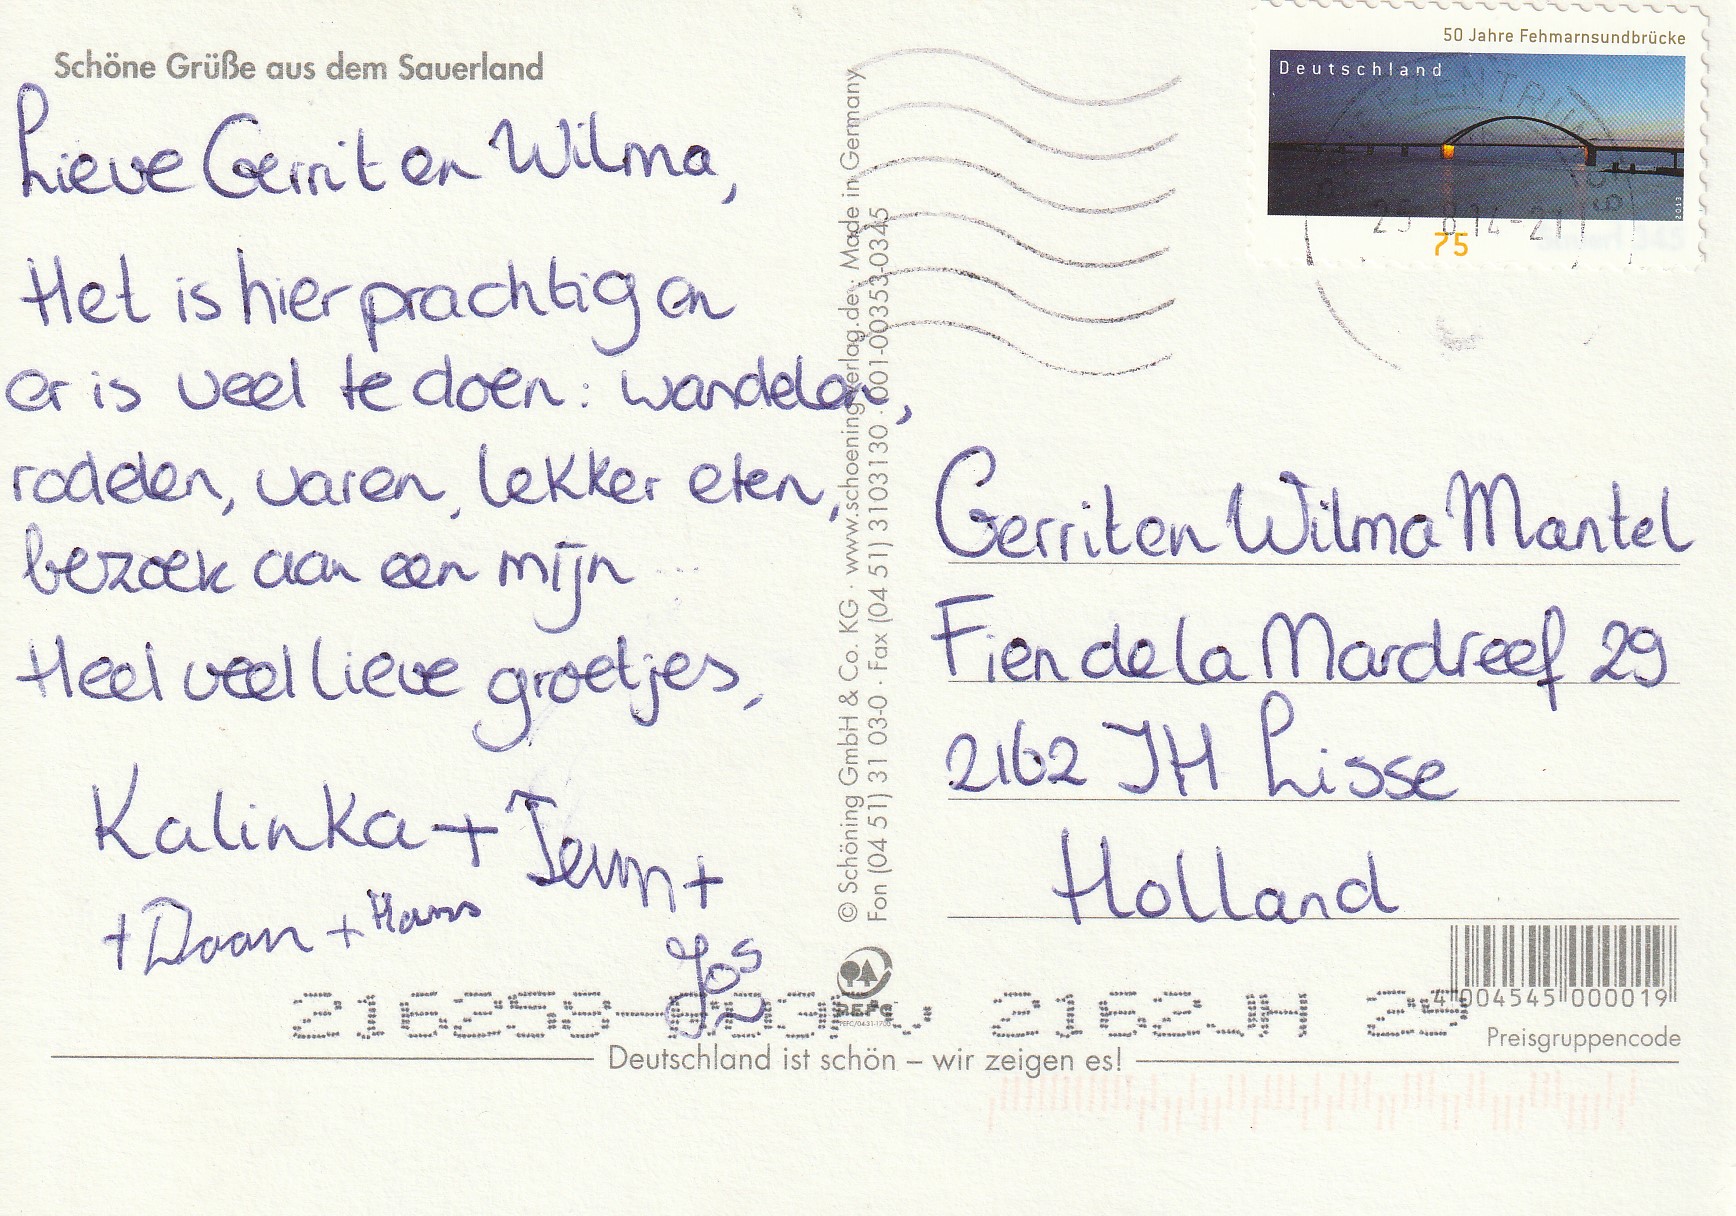 Schöne Grüße aus dem Sauerland
Lieve Gerrit en Wilma,
Het is hier prachtig en
er is veel te doen: wandelen,
rodelen, varen, lekker eten,
bezoek aan een mijn ...
Heel veel lieve groetjes,
Kalinka + Teun +
+ Daan + Hans
Jos
© Schöning GmbH & Co. KG · www.schoening-verlag.de · Made in Germany
Fon (04 51) 31 03-0 · Fax (04 51) 3103130 · 001-00353-0345
50 Jahre Fehmarnsundbrücke
Deutschland
2013
75
25 8 14-21
Gerrit en Wilma Mantel
Fien de la Mardreef 29
2162 JH Lisse
Holland
4 004545 000019
Preisgruppencode
PEFC
2162JH 29
Deutschland ist schön – wir zeigen es!